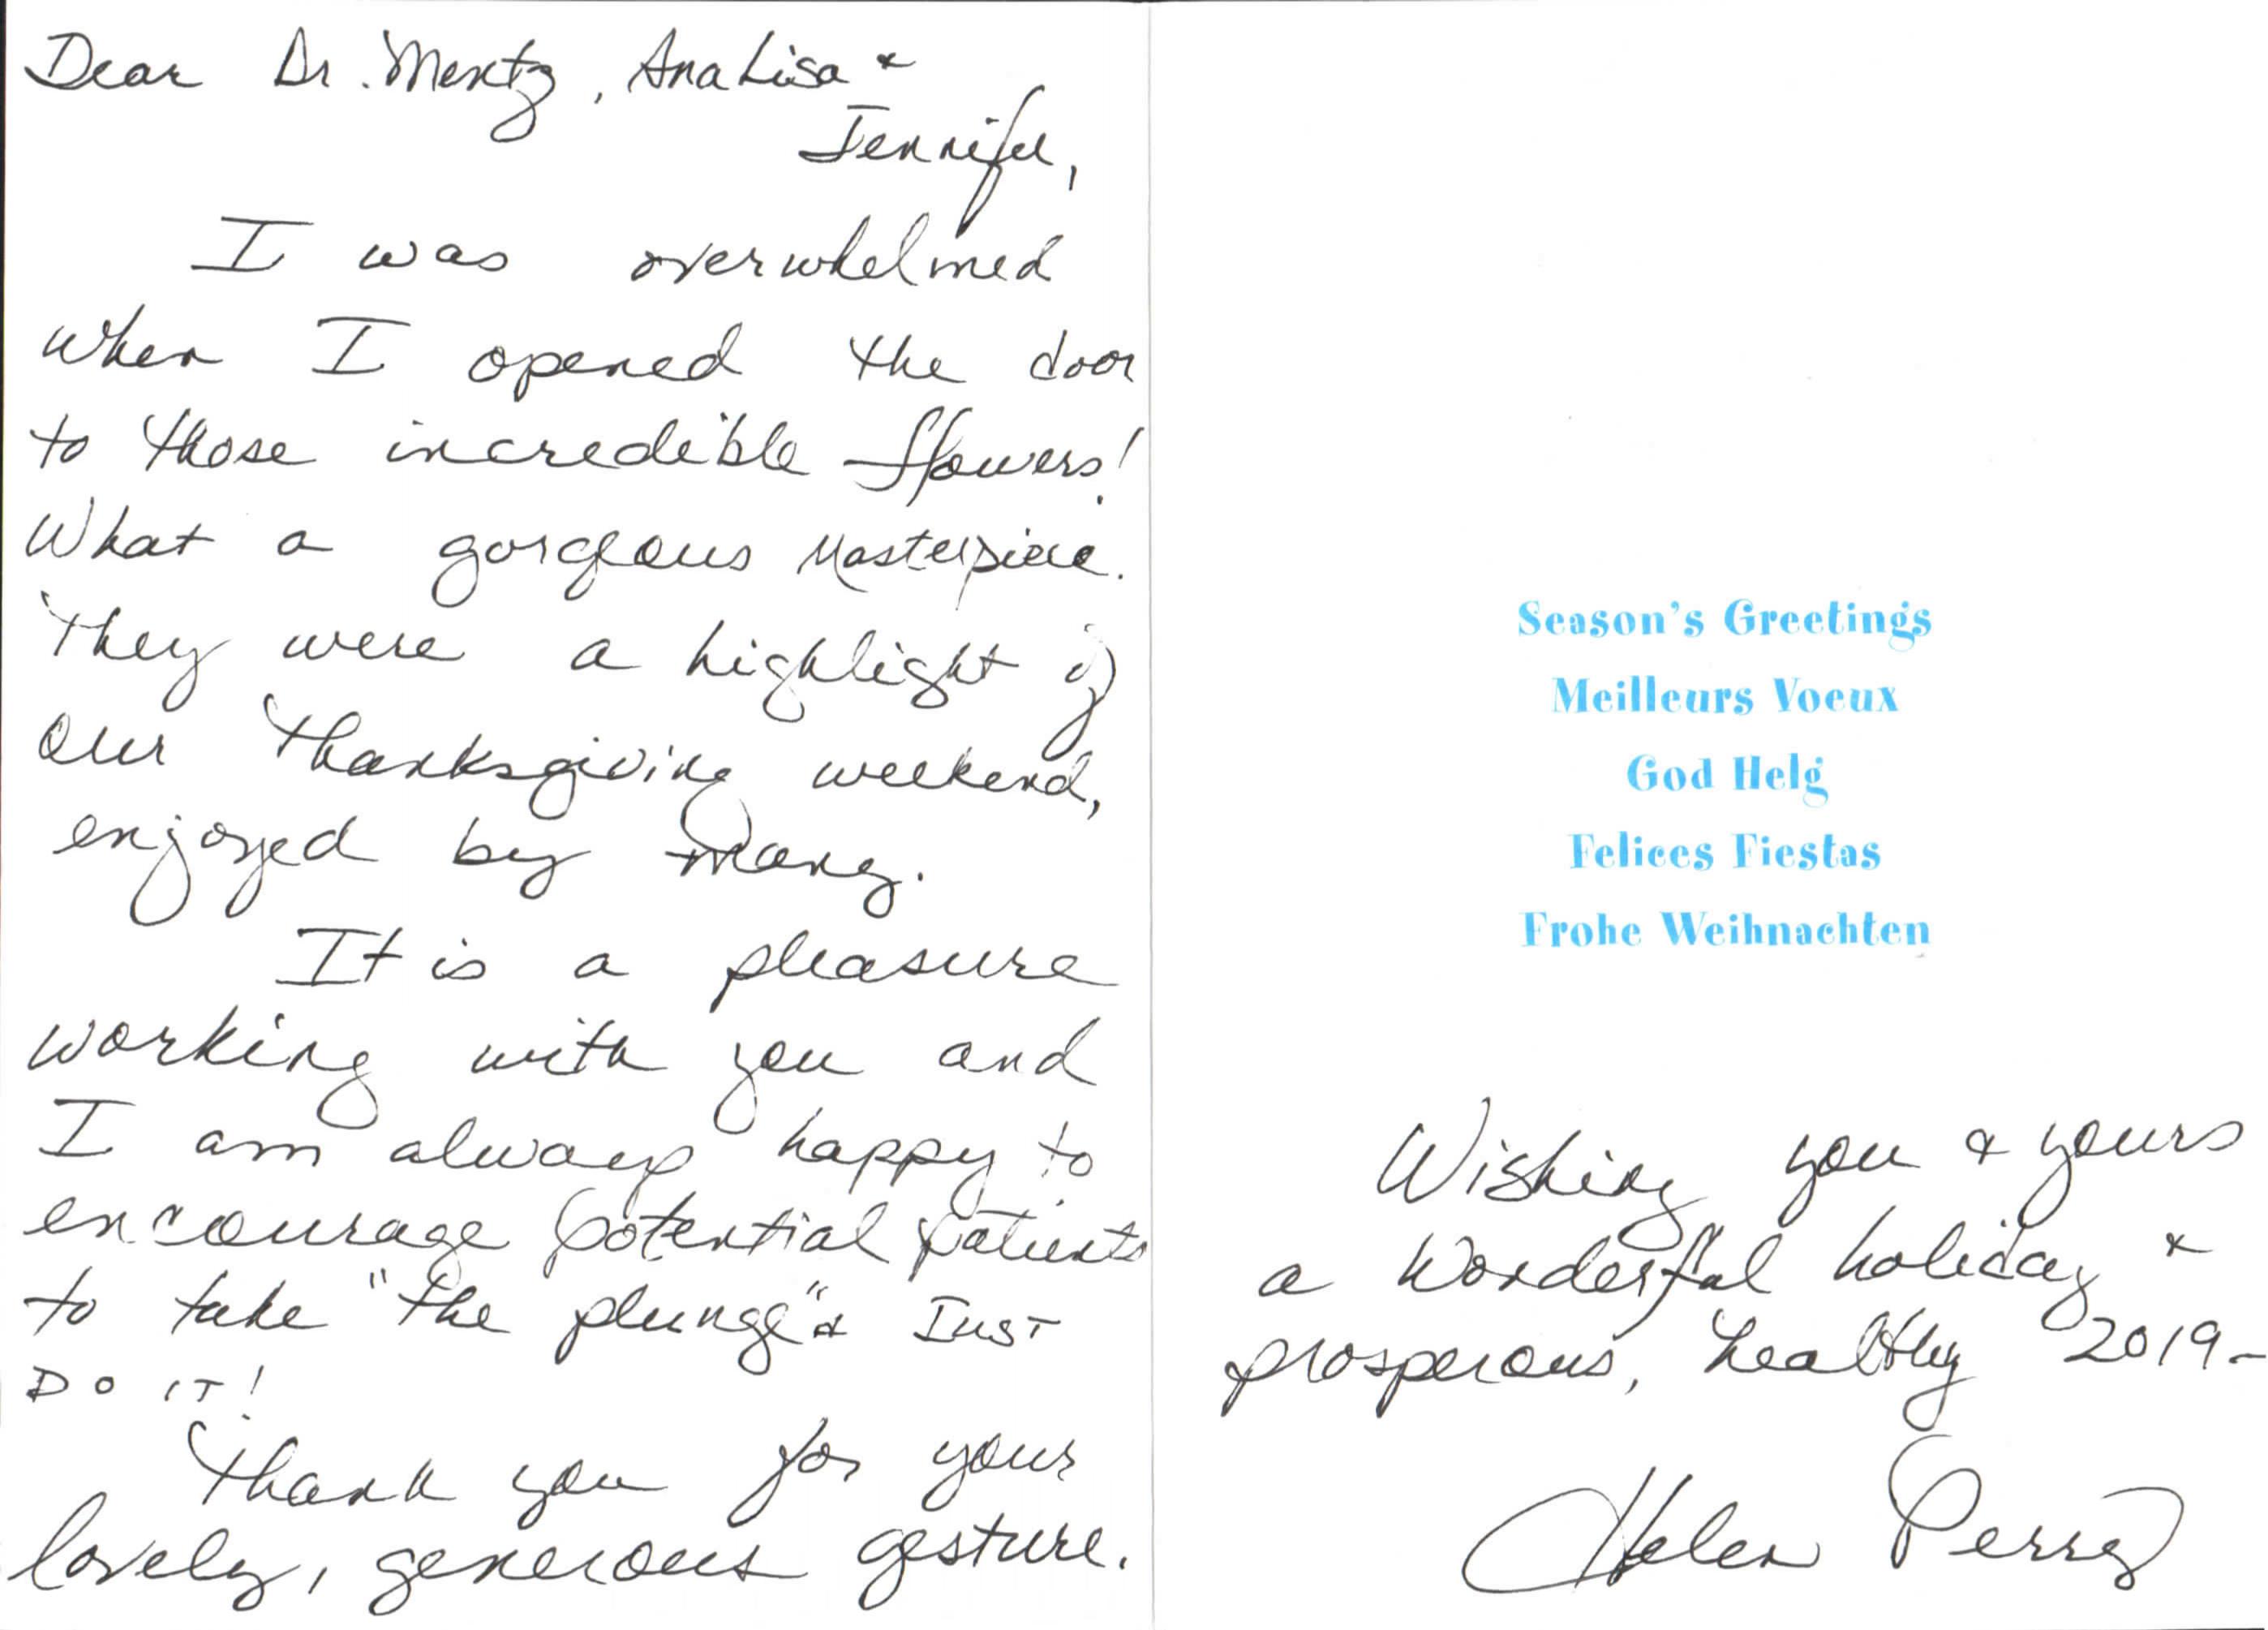 Dear Dr. Mentz, AnaLisa &
Jennifer,
I was overwhelmed
when I opened the door
to those incredible flowers!
What a gorgeous masterpiece.
They were a highlight of
our Thanksgiving weekend,
enjoyed by many.
It is a pleasure
working with you and
I am always happy to
encourage potential patients
to take "the plunge" & JUST
DO IT!
Thank you for your
lovely, generous gesture.
Season's Greetings
Meilleurs Voeux
God Helg
Felices Fiestas
Frohe Weihnachten
Wishing you & yours
a wonderful holiday &
prosperous, healthy 2019-
Helen Perry